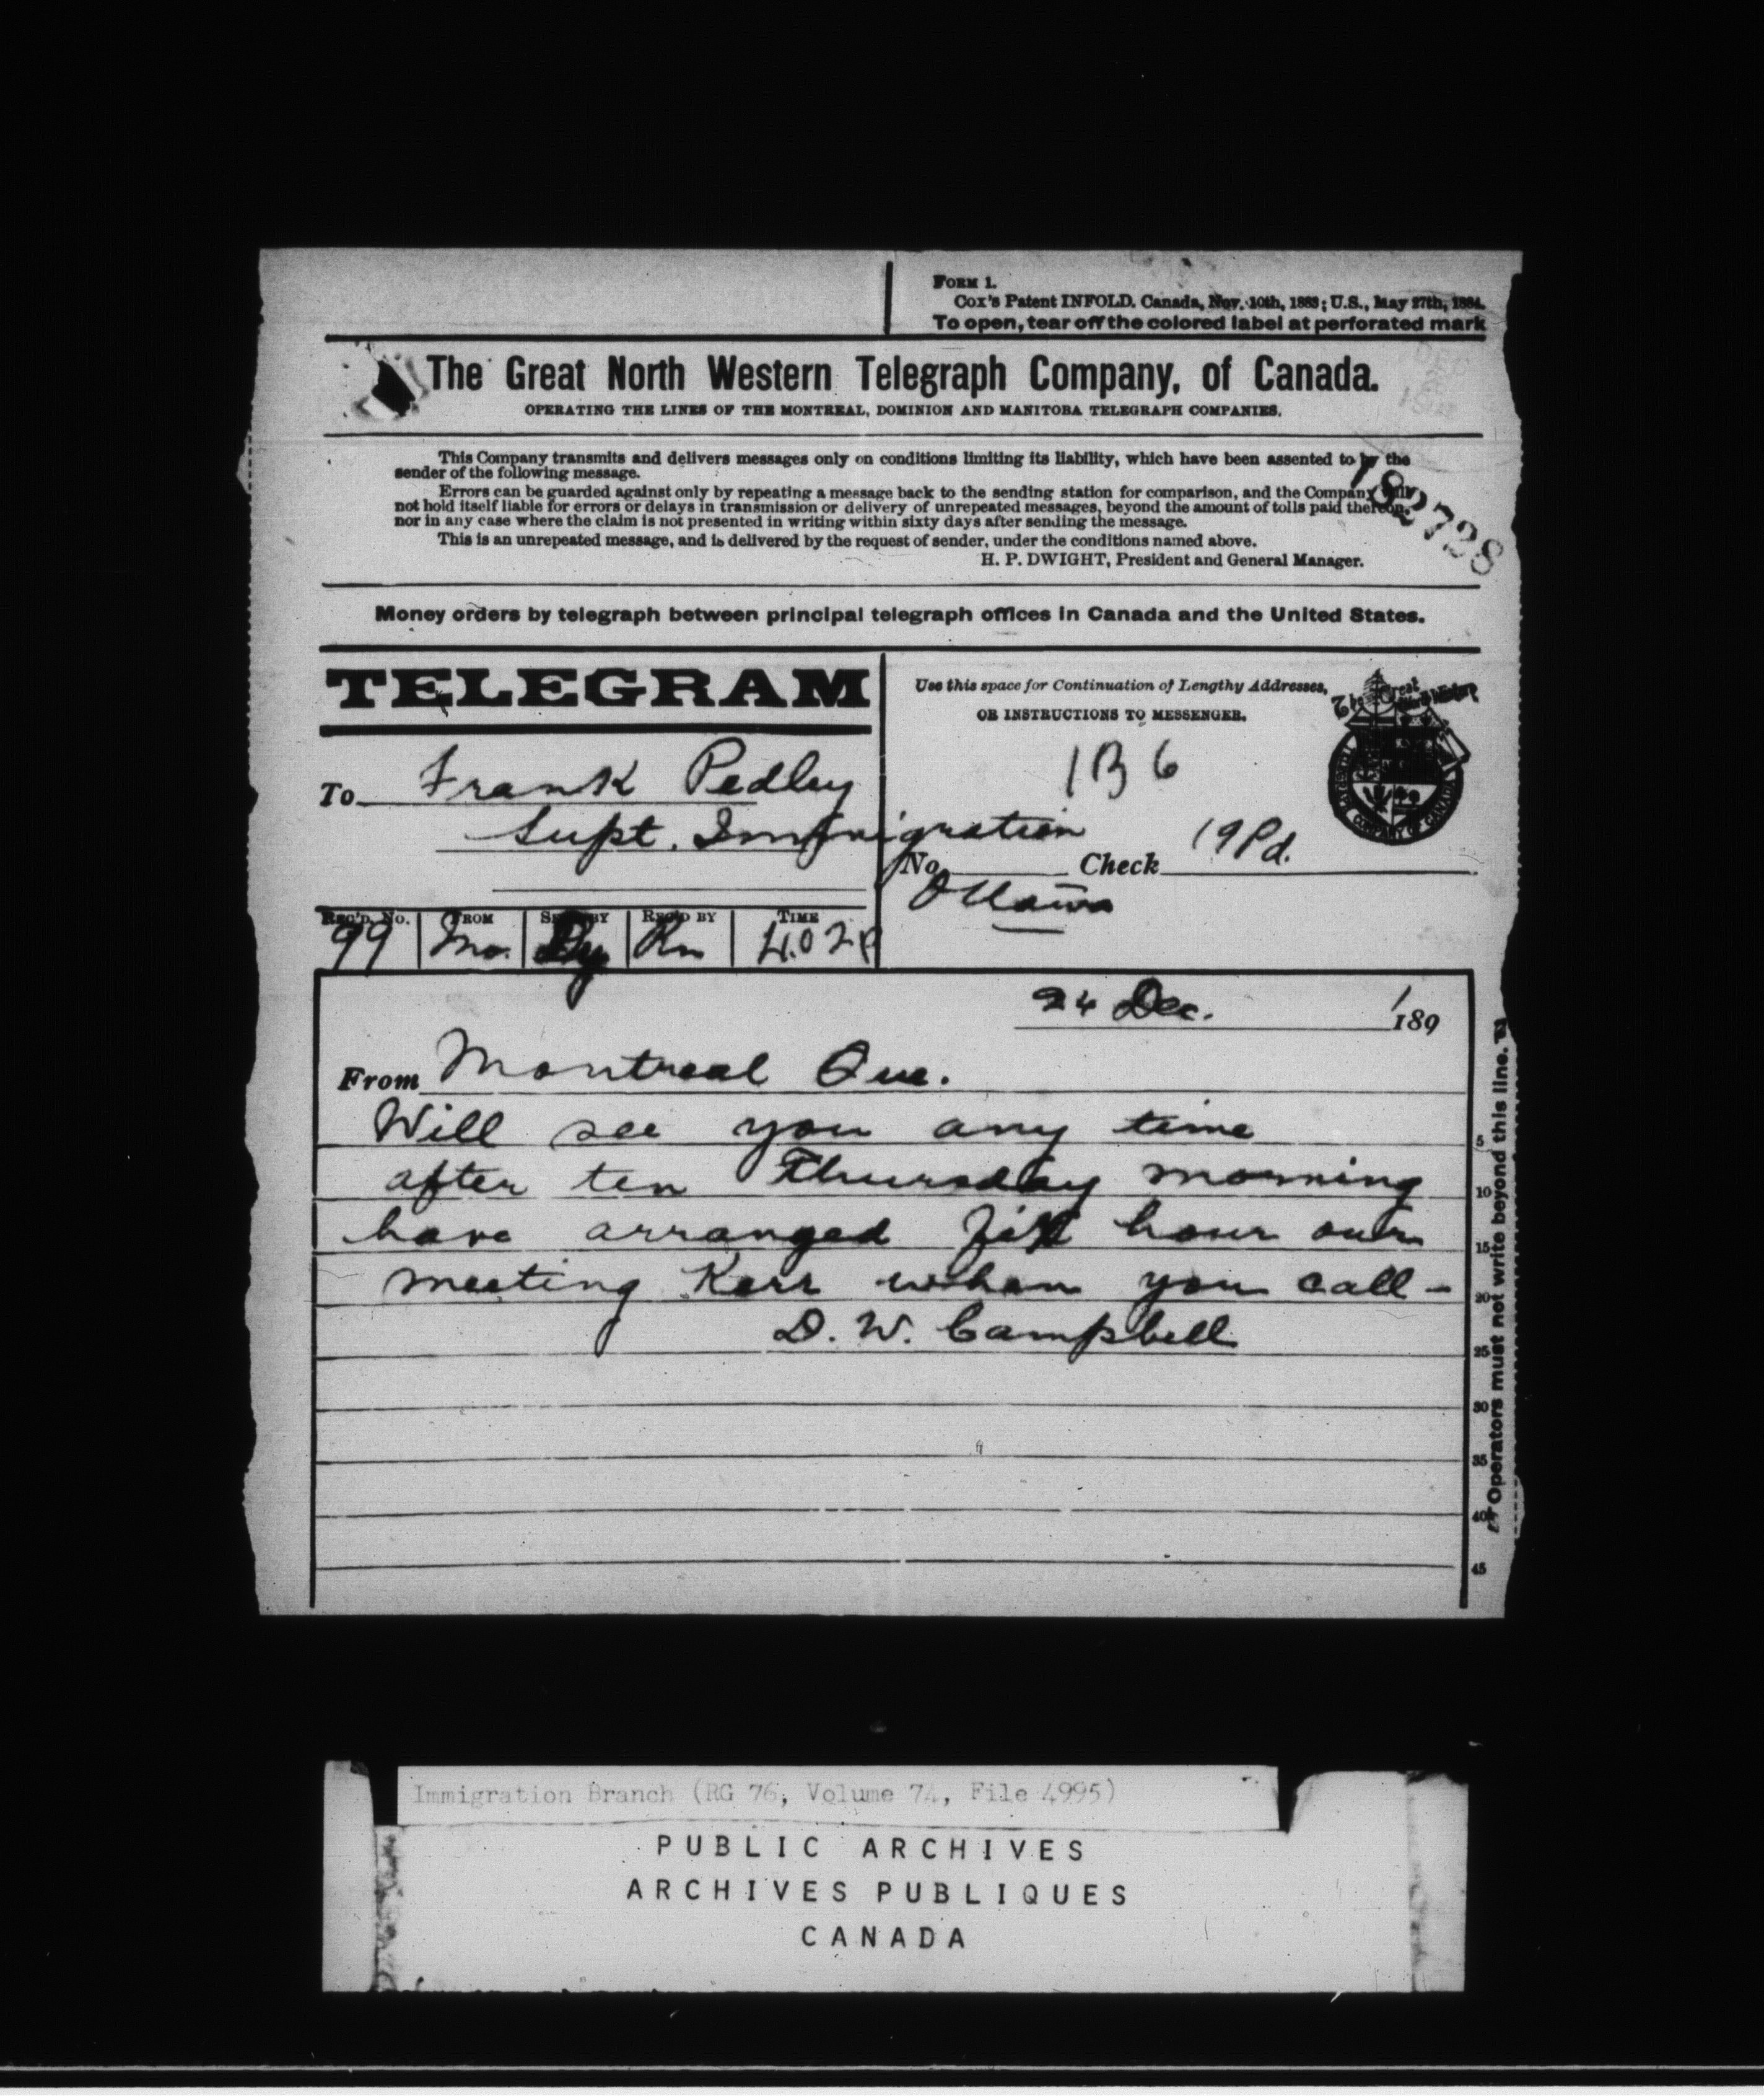 FORM 1.
Cox's Patent INFOLD. Canada, Nov. 10th, 1883; U.S., May 27th, 1884.
To open, tear off the colored label at perforated mark
The Great North Western Telegraph Company, of Canada.
OPERATING THE LINES OF THE MONTREAL, DOMINION AND MANITOBA TELEGRAPH COMPANIES.
This Company transmits and delivers messages only on conditions limiting its liability, which have been assented to by the
sender of the following message.
Errors can be guarded against only by repeating a message back to the sending station for comparison, and the Company will
not hold itself liable for errors or delays in transmission or delivery of unrepeated messages, beyond the amount of tolls paid thereon,
nor in any case where the claim is not presented in writing within sixty days after sending the message.
This is an unrepeated message, and is delivered by the request of sender, under the conditions named above.
H. P. DWIGHT, President and General Manager.
182728
Money orders by telegraph between principal telegraph offices in Canada and the United States.
TELEGRAM
Use this space for Continuation of Lengthy Addresses,
OR INSTRUCTIONS TO MESSENGER.
1B 6
To Frank Pedley
Supt. Immigration
No. Check 19 Pd.
Ottawa
REC'D. No. FROM SENT BY REC'D BY TIME
99 Mo. Dy Rn 4.02 P
24 Dec. 189
From Montreal Que.
Will see you any time
after ten Thursday morning
have arranged hour our
meeting Kerr when you call -
D. W. Campbell
5
10
15
20
25
30
35
40
45
Operators must not write beyond this line.
Immigration Branch (RG 76, Volume 74, File 4995)
PUBLIC ARCHIVES
ARCHIVES PUBLIQUES
CANADA